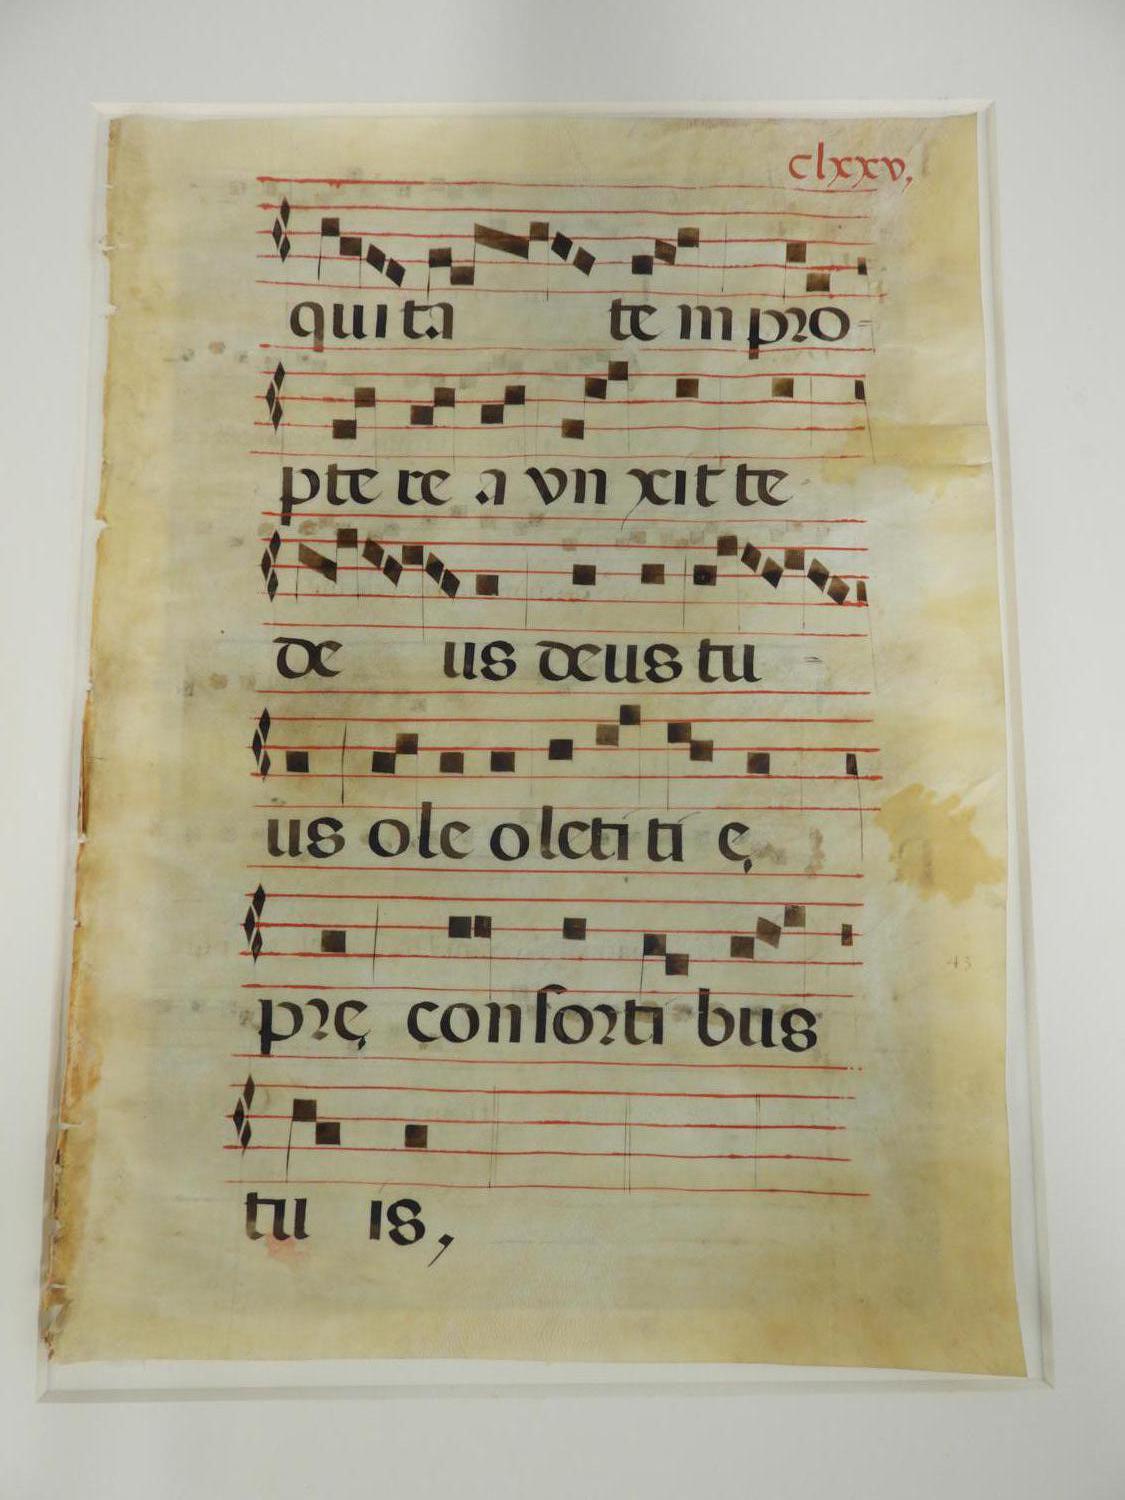 clxxv,
quita te m pro-
pte re a vn xit te
de us deus tu
us ole o leti ti ę
43
prę consorti bus
tu is,